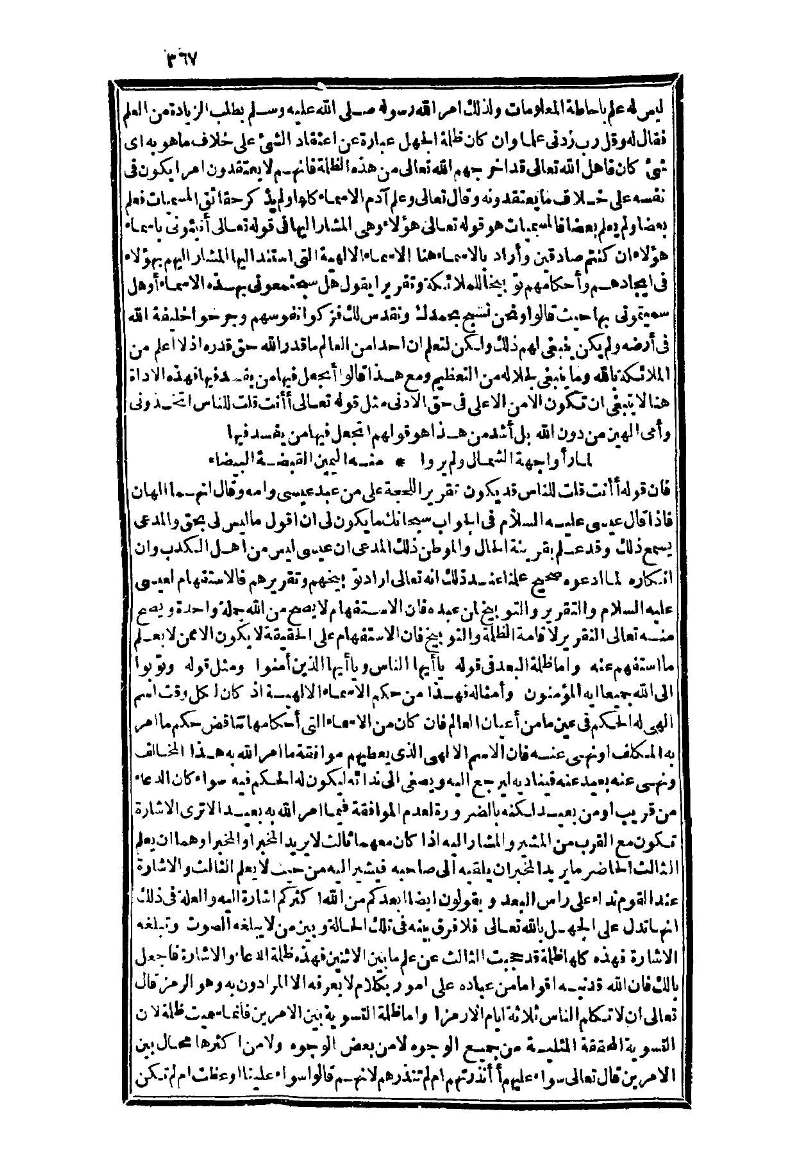 ٣٦٧
ليس له علم باحاطة المعلومات ولذلك امر الله رسوله صلى الله عليه وسلم بطلب الزيادة من العلم
فقال له وقل رب زدنى علما وان كان ظلمة الجهل عبارة عن اعتقاد الشئ على خلاف ما هو به اى
شئ كان فاهل الله تعالى قد اخرجهم الله تعالى من هذه الظلمة فانهم لا يعتقدون امرا يكون فى
نفسه على خلاف ما يعتقدونه وقال تعالى وعلم آدم الاسماء كلها ولم يذكر حقائق المسميات فعلم
بعضا ولم يعلم بعضا فالمسميات هو قوله تعالى هؤلاء وهى المشار اليها فى قوله تعالى أنبئونى باسماء
هؤلاء ان كنتم صادقين وأراد بالاسماء هنا الاسماء الالهية التى استند اليها المشار اليهم بهؤلاء
فى ايجادهم وأحكامهم توبيخا للملائكة وتقريرا يقول هل سبحتمونى بهذه الاسماء أو هل
سميتمونى بها حيث قالوا ونحن نسبح بحمدك ونقدس لك فزكوا نفوسهم وجرحوا خليفة الله
فى أرضه ولم يكن ينبغى لهم ذلك ولكن لتعلم ان احدا من العالم ما قدر الله حق قدره اذ لا اعلم من
الملائكة بالله وما ينبغى لجلاله من التعظيم ومع هذا قالوا أتجعل فيها من يفسد فيها فهذه الاداة
هنا لا ينبغى ان تكون الا من الاعلى فى حق الادنى مثل قوله تعالى أأنت قلت للناس اتخذونى
وأمى الهين من دون الله بل أشد من هذا هو قولهم اتجعل فيها من يفسد فيها
لما رأوا جهة الشمال ولم يروا * منه اليمين القبضة البيضاء
فان قوله أأنت قلت للناس قد يكون تقريرا للحجة على من عبد عيسى وامه وقال انهما الهان
فاذا قال عيسى عليه السلام فى الجواب سبحانك ما يكون لى ان اقول ما ليس لى بحق والمدعى
يسمع ذلك وقد علم بقرينة الحال والموطن ذلك المدعى ان عيسى ليس من اهل الكذب وان
انكاره لما ادعوه صحيح علمنا عند ذلك انه تعالى اراد توبيخهم وتقريرهم فالاستفهام لعيسى
عليه السلام والتقرير والتوبيخ لمن عبده فان الاستفهام لا يصح من الله جملة واحدة ويصح
منه تعالى التقرير لاقامة الظلمة والتوبيخ فان الاستفهام على الحقيقة لا يكون الا ممن لا يعلم
ما استفهم عنه واما ظلمة البعد فى قوله ياأيها الناس وياأيها الذين آمنوا ومثل قوله وتوبوا
الى الله جميعا ايه المؤمنون وأمثاله فهذا من حكم الاسماء الالهية اذ كان لكل وقت اسم
الهى له الحكم فى عين ما من أعيان العالم فان كان من الاسماء التى أحكامها تناقض حكم ما امر
به المكلف او نهى عنه فان الاسم الالهى الذى يعطيهم موافقة ما امر الله به هذا المخالف
ونهى عنه بعيد عنه فيناديه ليرجع اليه ويصغى الى ندائه ليكون له الحكم فيه سواء كان الدعاء
من قريب او من بعيد لكنه بالضرورة لعدم الموافقة فيما امر الله به بعيد الا ترى الاشارة
تكون مع القرب من المشير والمشار اليه اذا كان معهما ثالث لا يريد المخبر او المخبر او هما ان يعلم
الثالث الحاضر ما يريد المخبر ان يلقيه الى صاحبه فيشير اليه من حيث لا يعلم الثالث والاشارة
عند القوم نداء على راس البعد ويقولون ايضا ابعدكم من الله اكثركم اشارة اليه والعلة فى ذلك
انها تدل على الجهل بالله تعالى فلا فرق بينه فى تلك الحالة وبين من لا يبلغه الصوت وتبلغه
الاشارة فهذه كلها ظلمة قد حجبت الثالث عن علم ما بين الاثنين فهذه ظلمة الدعاء والاشارة فاجعل
بالك فان الله قد نبه اقواما من عباده على امور بكلام لا يعرفه الا المرادون به وهو الرمز قال
تعالى ان لا تكلم الناس ثلاثة ايام الا رمزا واما ظلمة التسوية بين الامرين فانما سميت ظلمة لان
التسوية المحققة المثلية من جميع الوجوه لا من بعض الوجوه ولا من اكثرها محال بين
الامرين قال تعالى سواء عليهم أأنذرتهم ام لم تنذرهم لانهم قالوا سواء علينا اوعظت ام لم تكن